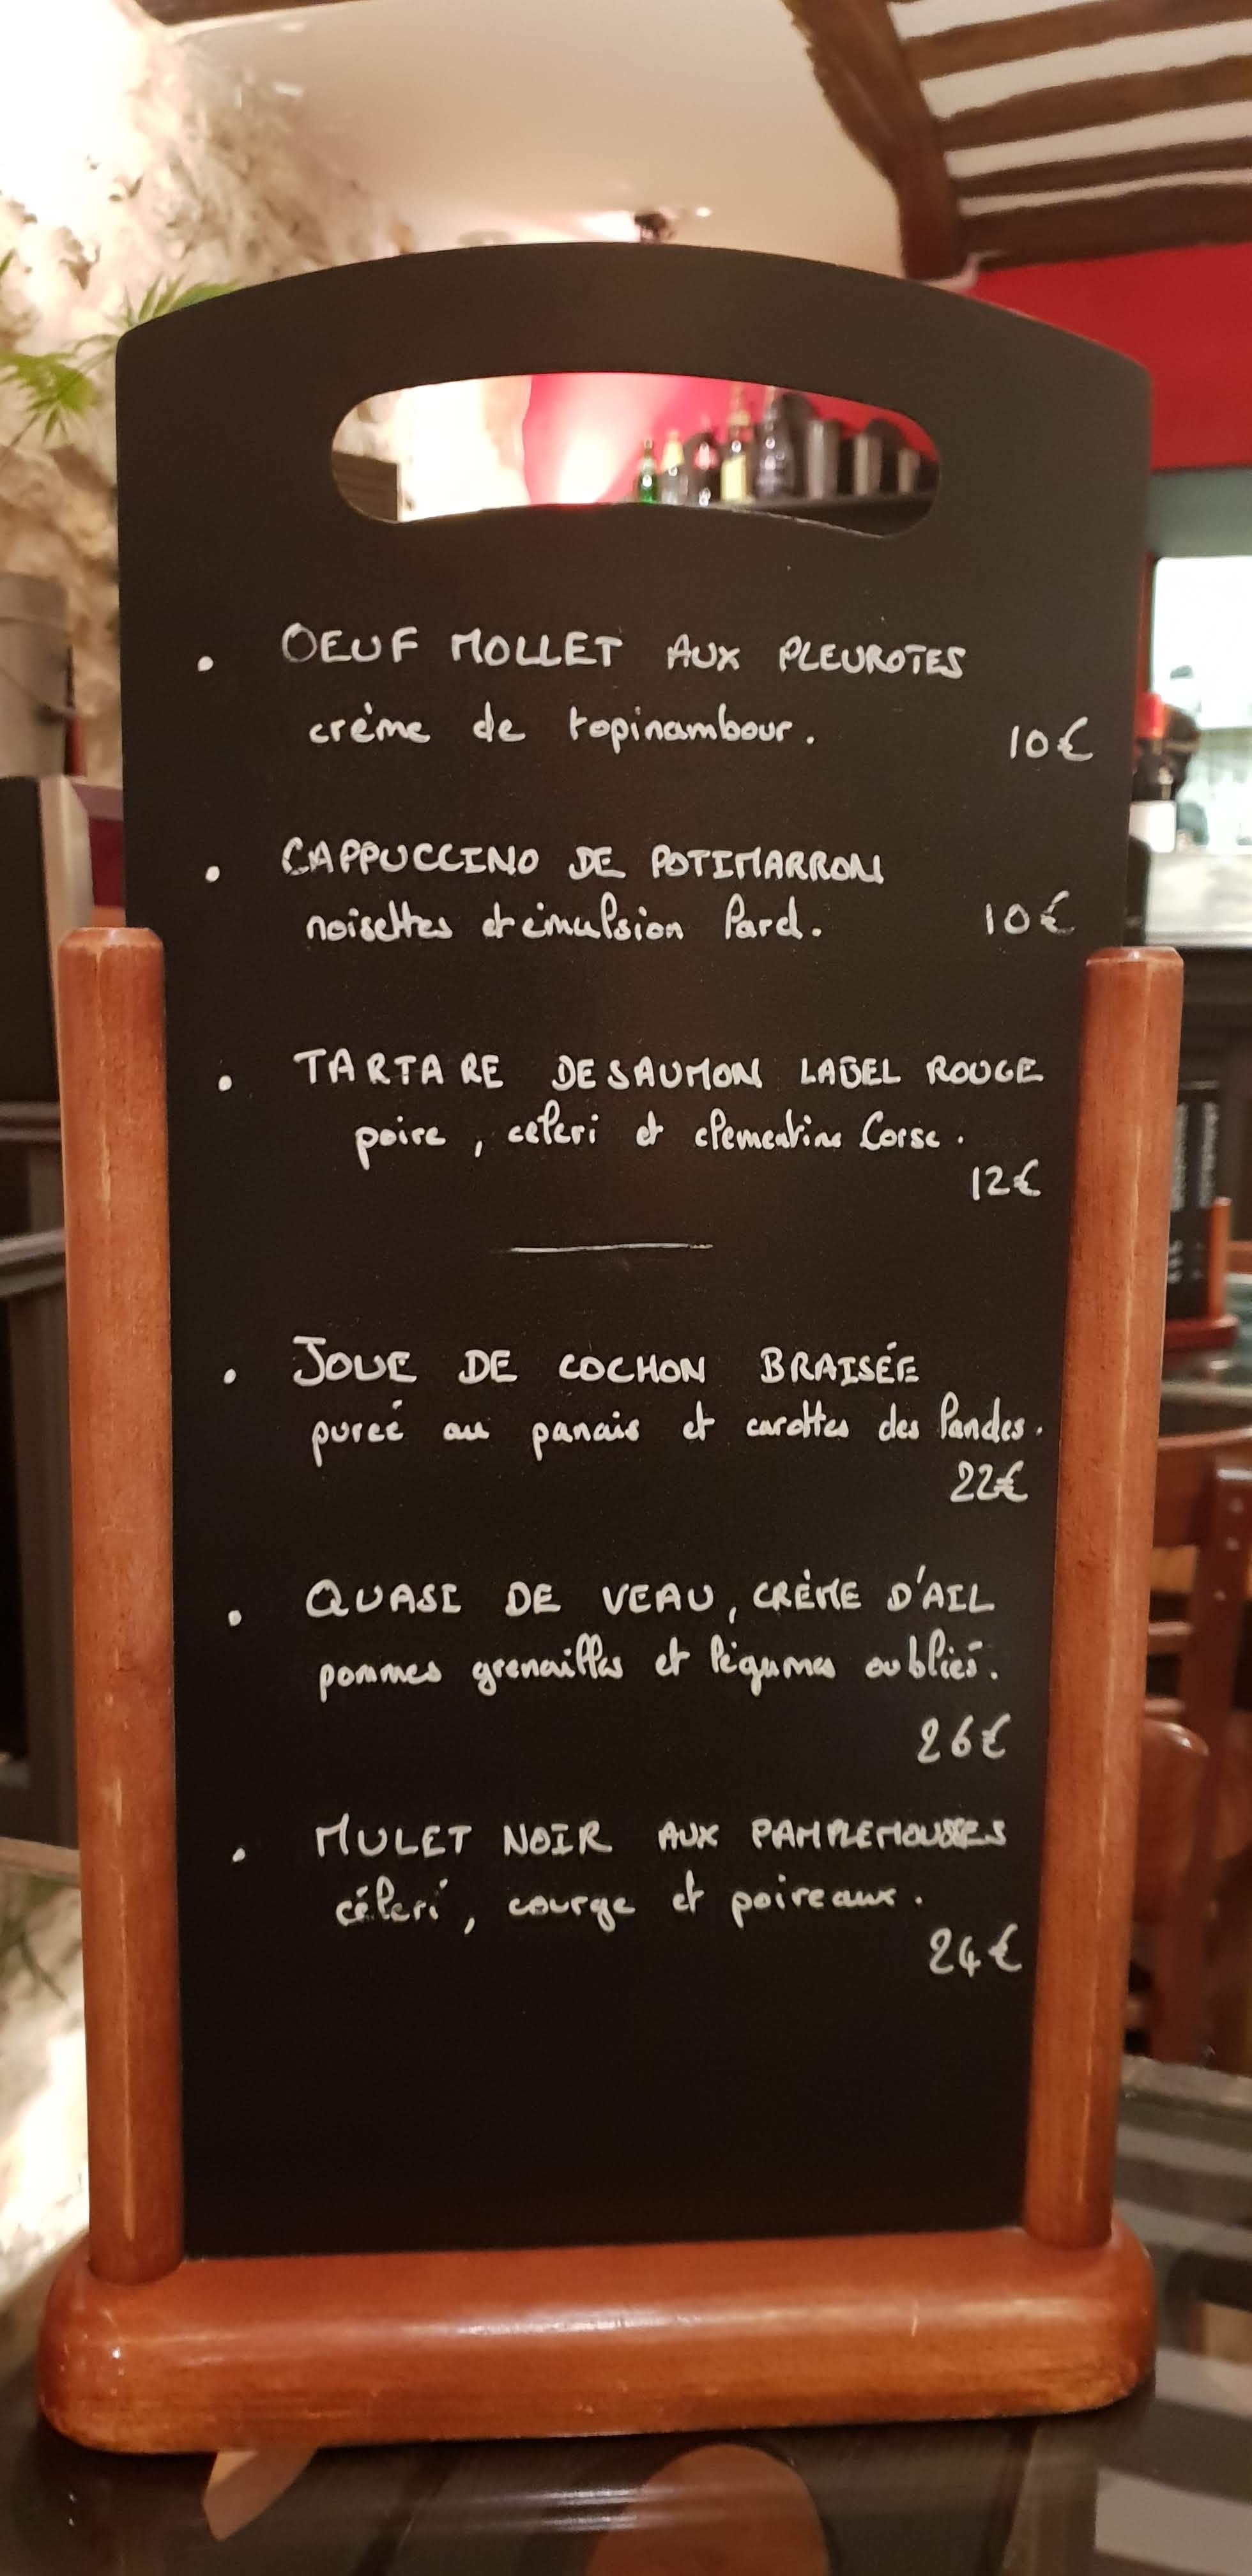 . OEUF MOLLET AUX PLEUROTES
crème de topinambour. 10€
. CAPPUCCINO DE POTIMARRON
noisettes et émulsion lard. 10€
. TARTARE DE SAUMON LABEL ROUGE
poire, céleri et clementine Corse.
12€
. JOUE DE COCHON BRAISÉE
pureé au panais et carottes des landes.
22€
. QUASI DE VEAU, CRÈME D'AIL
pommes grenailles et légumes oubliés.
26€
. MULET NOIR AUX PAMPLEMOUSSES
céleri, courge et poireaux.
24€